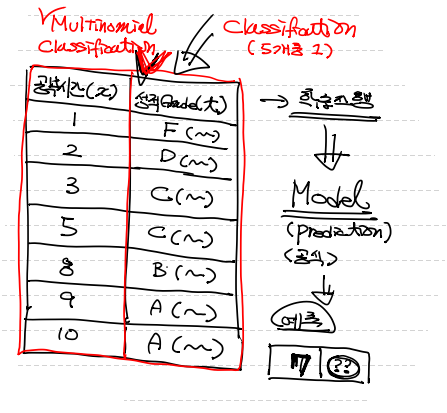 Multinomial
Classification
Classification
(5개중 1)
공부시간(x) 성적Grade(t)
1 F(~)
2 D(~)
3 C(~)
5 C(~)
8 B(~)
9 A(~)
10 A(~)
→
Model
(prediction)
(공식)
예측
7 ??